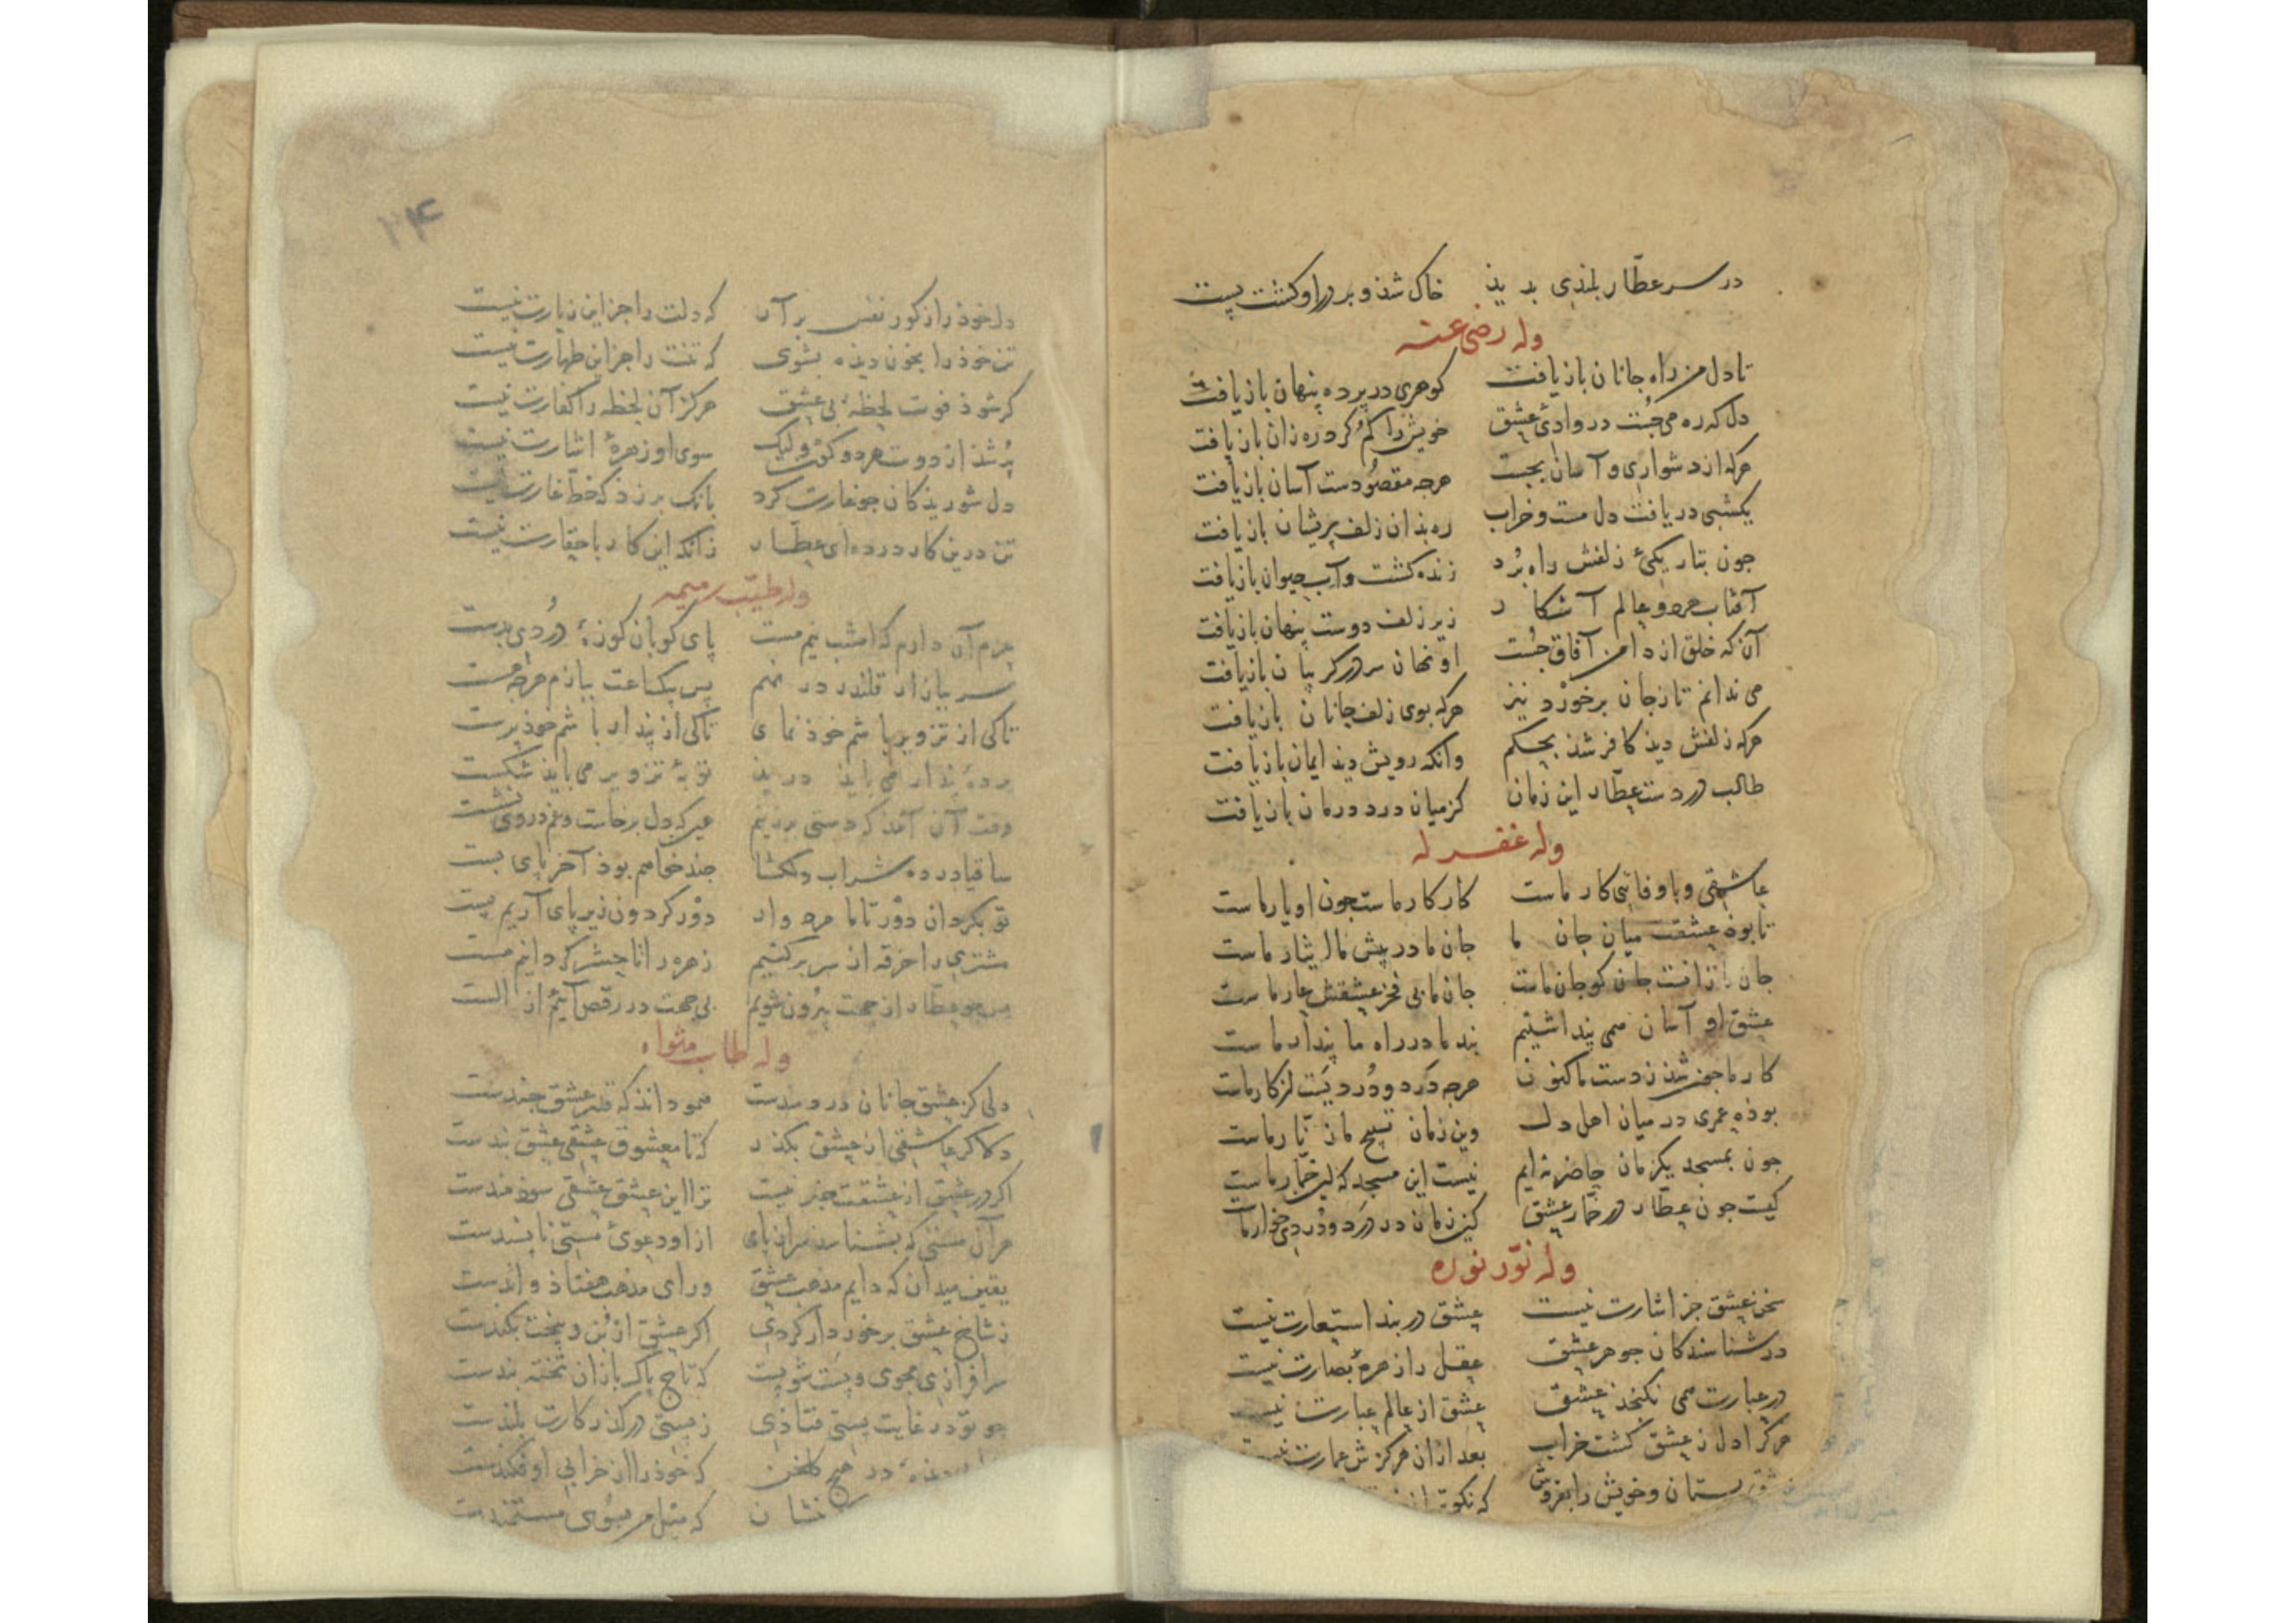 در سر عطار بلندی بدید خاک شذ و بر در او کشت پست
وله رضی عنه
تا دل من راه جانان بازیافت کوهری در پرده پنهان بازیافت
دل که ره می جست در وادئ عشق خویش را کم کرد ره زان بازیافت
هر که از دشواری و آسان بجست هرجه مقصودست آسان بازیافت
یکشبی دریافت دل مست و خراب ره بذان زلف پریشان بازیافت
جون بتاریکئ زلفش راه برد زنده کشت و آب حیوان بازیافت
آفتاب هر دو عالم آشکار زیر زلف دوست پنهان بازیافت
آن که خلق از دامن آفاق جست او نهان سر در کریبان بازیافت
می ندانم تا زجان برخورد نیز هر که بوی زلف جانان بازیافت
هر که زلفش دید کافر شذ بحکم وانکه رویش دید ایمان بازیافت
طالب دردست عطار این زمان کز میان درد درمان بازیافت
وله غفر له
عاشقی و باوفائی کار ماست کار کار ماست جون او یار ماست
تا بوذ عشقت میان جان ما جان ما در پیش ما ایثار ماست
جان ما زانست جان کو جان ماست جان ما بی فخر عشقش عار ماست
عشق او آسان همی پنداشتیم بند ما در راه ما پندار ماست
کار ما جون شذ زدست ما کنون هرجه درد و درد یست از کار ماست
بوذه عمری در میان اهل دل وین زمان تسبیح مان زنار ماست
جون بمسجد یکزمان حاضر نه ایم نیست این مسجد که این خمار ماست
کیست جون عطار در خمار عشق کین زمان در درد دردی خوار ماست
وله نور نوره
سخن عشق جز اشارت نیست عشق در بند استعارت نیست
در شناسندکان جوهر عشق عقل را زهرهٔ بصارت نیست
در عبارت همی نکنجذ عشق عشق از عالم عبارت نیست
هر کرا دل ز عشق کشت خراب بعد ازان هرکزش عمارت نیست
عشق بستان و خویش را بفروش که نکوتر از
۲۴
دل خوذ را ز کور نفس بر آر که دلت را جز این زیارت نیست
تن خوذ را بخون دیده بشوی که تنت را جز این طهارت نیست
کر شوذ فوت لحظهٔ بی عشق هرکز آن لحظه را کفارت نیست
پر شذ از دوست هر دو کون ولیک سوی او زهرهٔ اشارت نیست
دل شوریذکان جو غارت کرد بانک بر زد که خط غارت نیست
تن درین کار در ده ای عطار زانکه این کار با حقارت نیست
وله طیب رمیمه
عزم آن دارم که امشب نیم مست پای کوبان کوزهٔ دردی بدست
سر ببازار قلندر در نهم پس بیکساعت ببازم هرجه هست
تا کی از تزویر باشم خوذ نمای تا کی از پندار باشم خوذ پرست
پردهٔ پندار می بایذ درید توبهٔ تزویر می بایذ شکست
وقت آن آمذ که دستی بر زنیم دل برخاست و غم در وی نشست
ساقیا در ده شراب دلکشا جند خواهم بوذ آخر پای بست
تو بکردان دور تا ما مرد وار دور کردون زیر پای آریم پست
مشتری را خرقه از سر برکشیم زهره را تا حشر کردانیم مست
پس جو عطار از جهت بیرون شویم بی جهت در رقص آئیم از الست
وله طاب مثواه
دلی کز عشق جانان دردمندست همو داند که قدر عشق جندست
دلا کر عاشقی از عشق بکذر که تا معشوق عشقی عشق بندست
اکر در عشق از عشقت خبر نیست ترا این عشق عشقی سوذمندست
هر آن مستی که بشناسد سر از پای ازاو دعوئ مستی ناپسندست
یقین میدان که دایم مذهب عشق ورای مذهب هفتاذ و اندست
ز شاخ عشق برخوردار کردی اکر عشق از بن و بیخت بکندست
سرافرازی مجوی و پست شو پست که تاج پاکبازان تخته بندست
جو تو در غایت پستی فتاذی ز پستی در کذر کارت بلندست
در هیچ کلخن که خوذ را از خرابی او فکندست
نشان که مثل من بسوی مستمندست